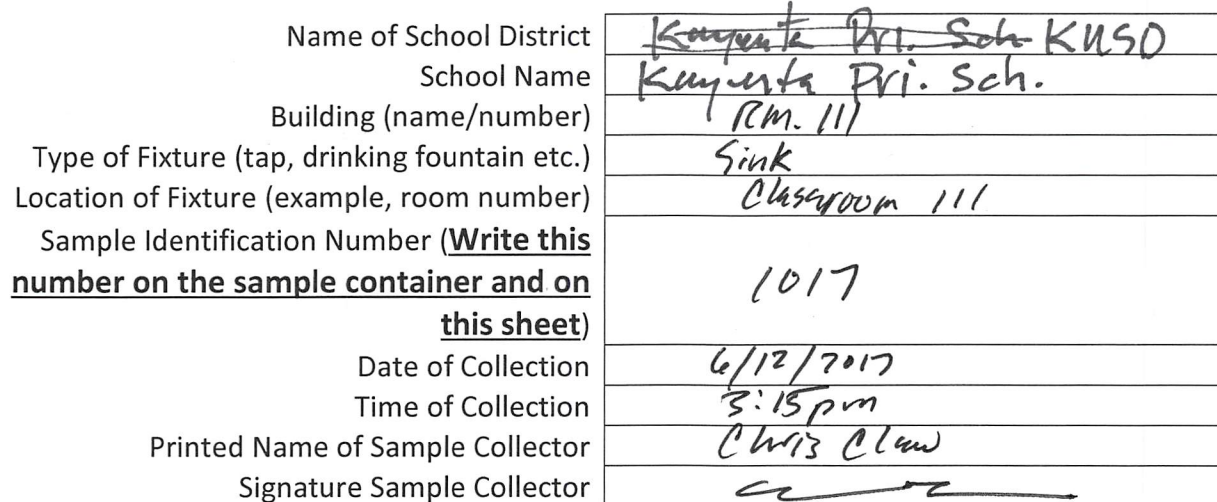 Name of School District Kayenta Pri. Sch KUSD
School Name Kayenta Pri. Sch.
Building (name/number) RM. 111
Type of Fixture (tap, drinking fountain etc.) Sink
Location of Fixture (example, room number) Classroom 111
Sample Identification Number (Write this
number on the sample container and on 1017
this sheet)
Date of Collection 6/12/2017
Time of Collection 3:15pm
Printed Name of Sample Collector Chris Claw
Signature Sample Collector